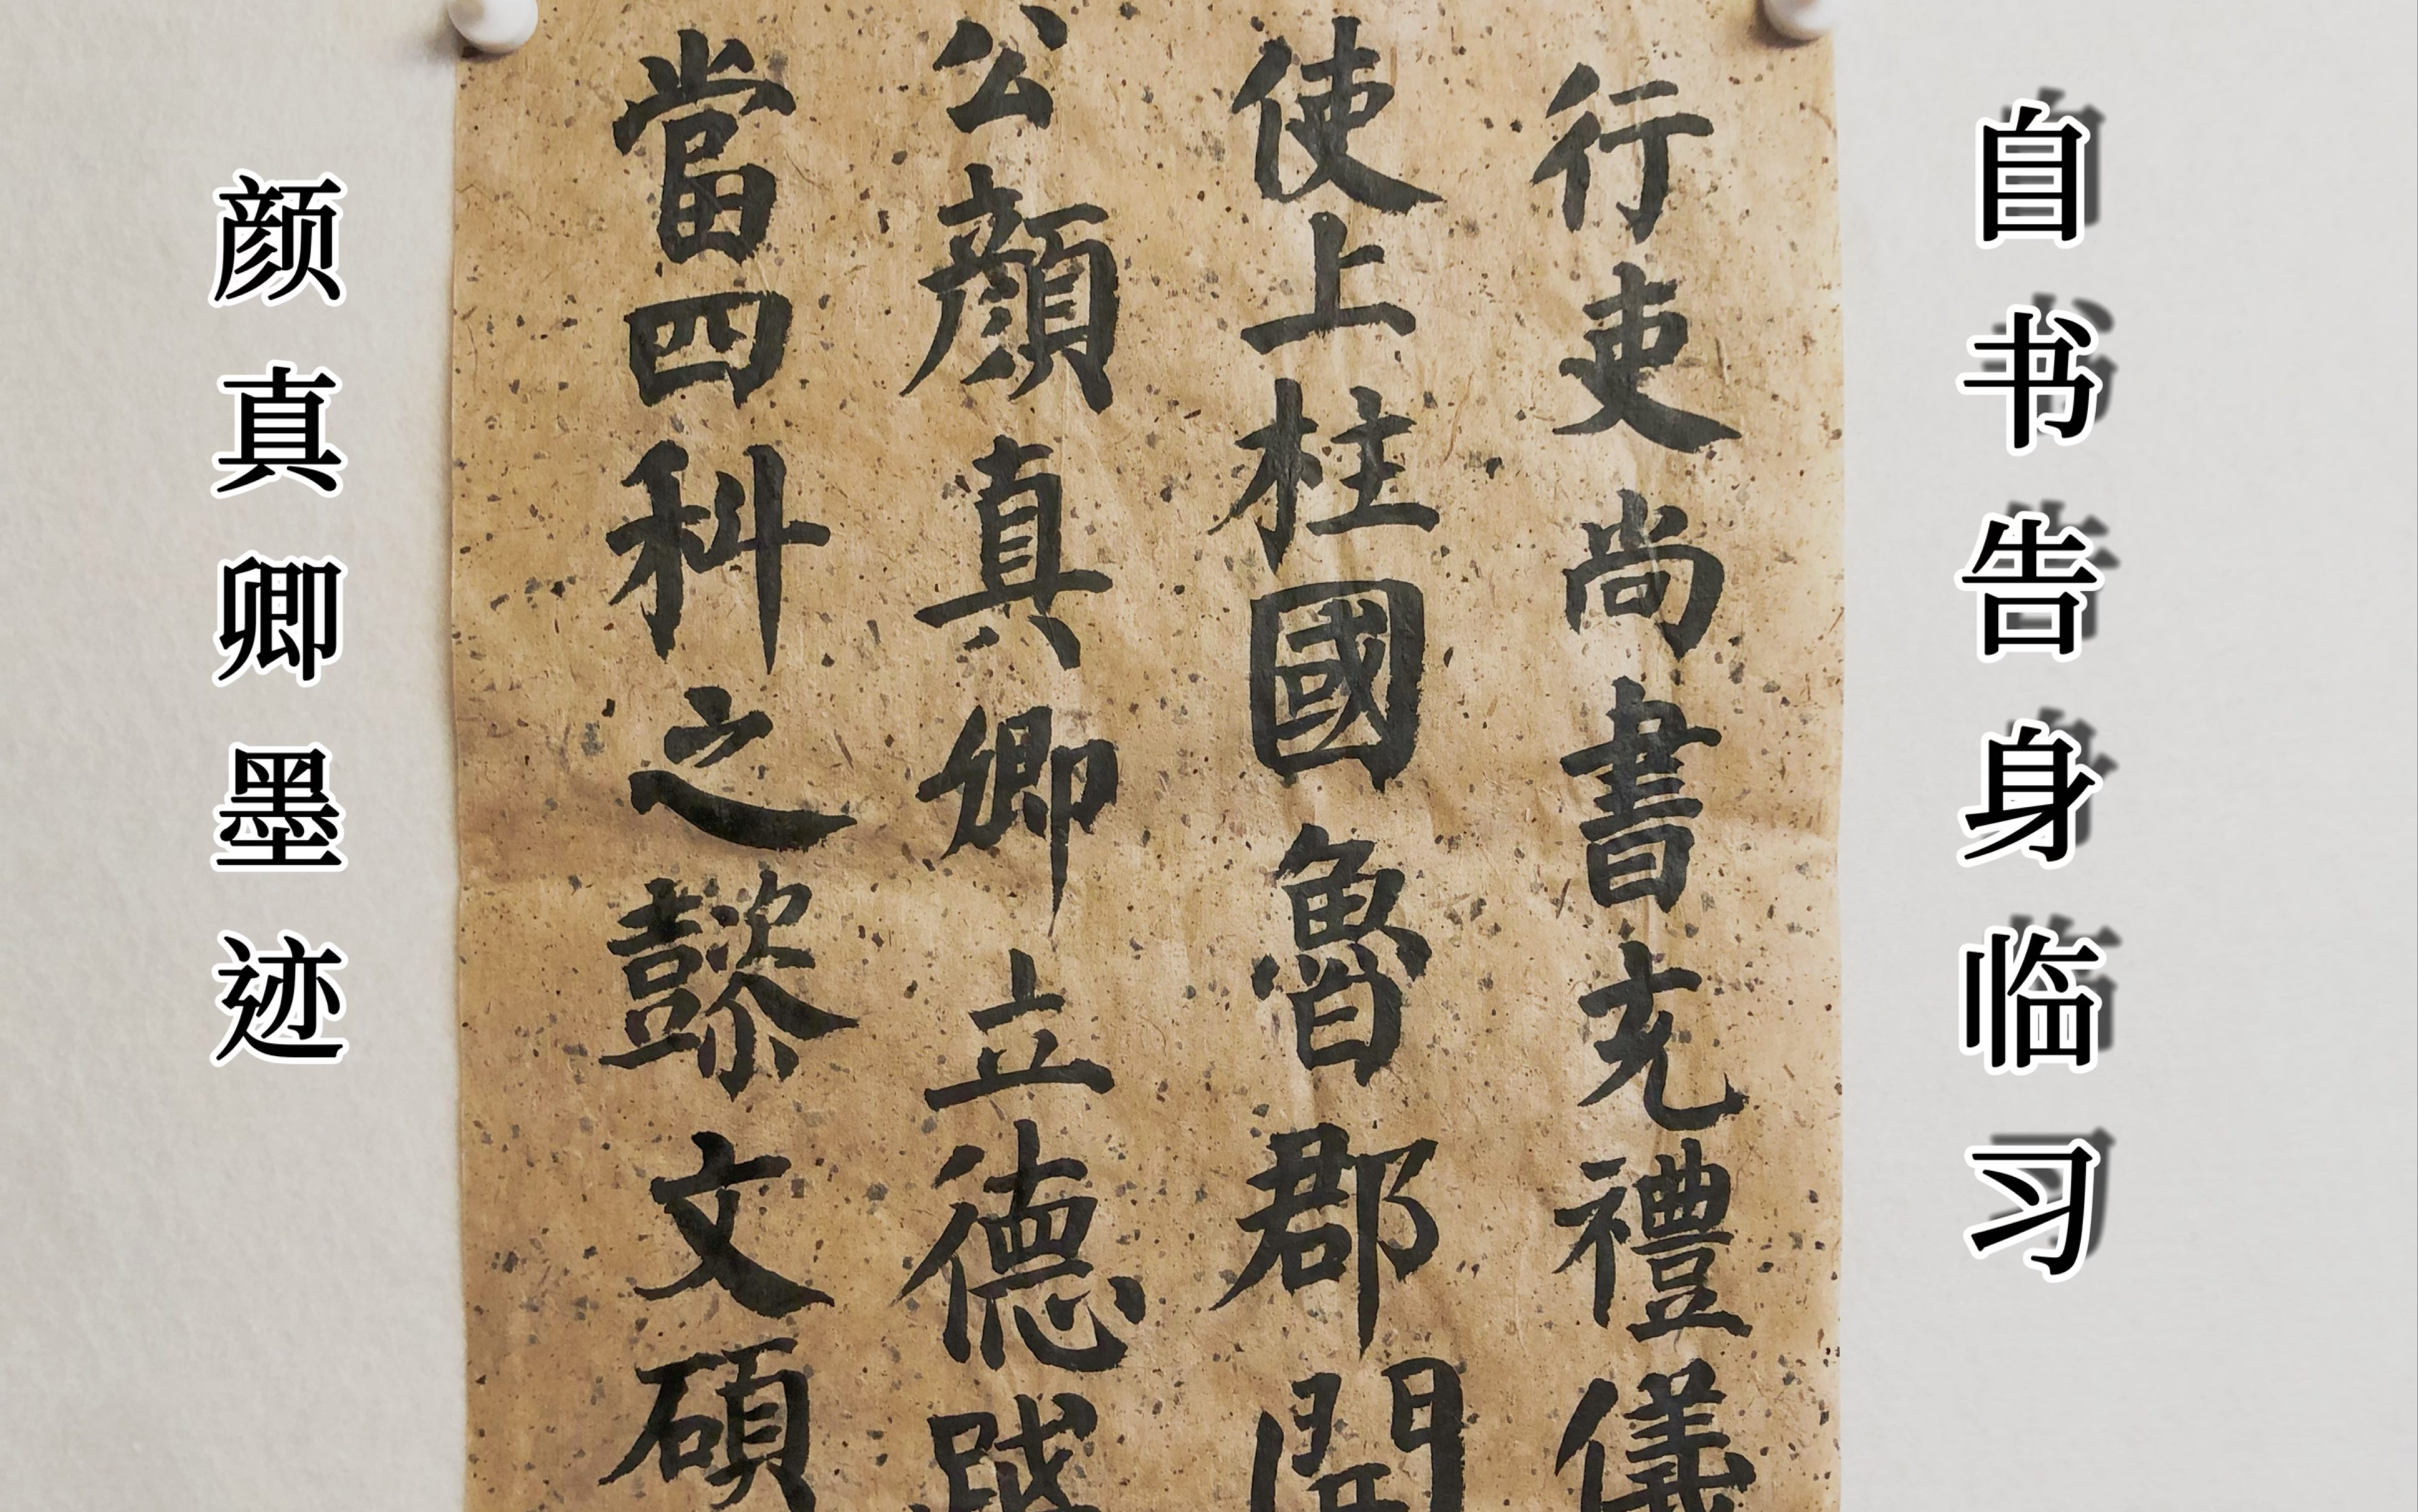 自书告身临习
行吏尚書充禮儀
使上柱國魯郡開
公顏真卿立德踐
當四科之懿文碩
颜真卿墨迹